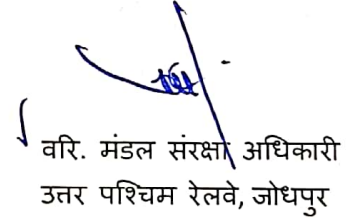 वरि. मंडल संरक्षा अधिकारी
उत्तर पश्चिम रेलवे, जोधपुर